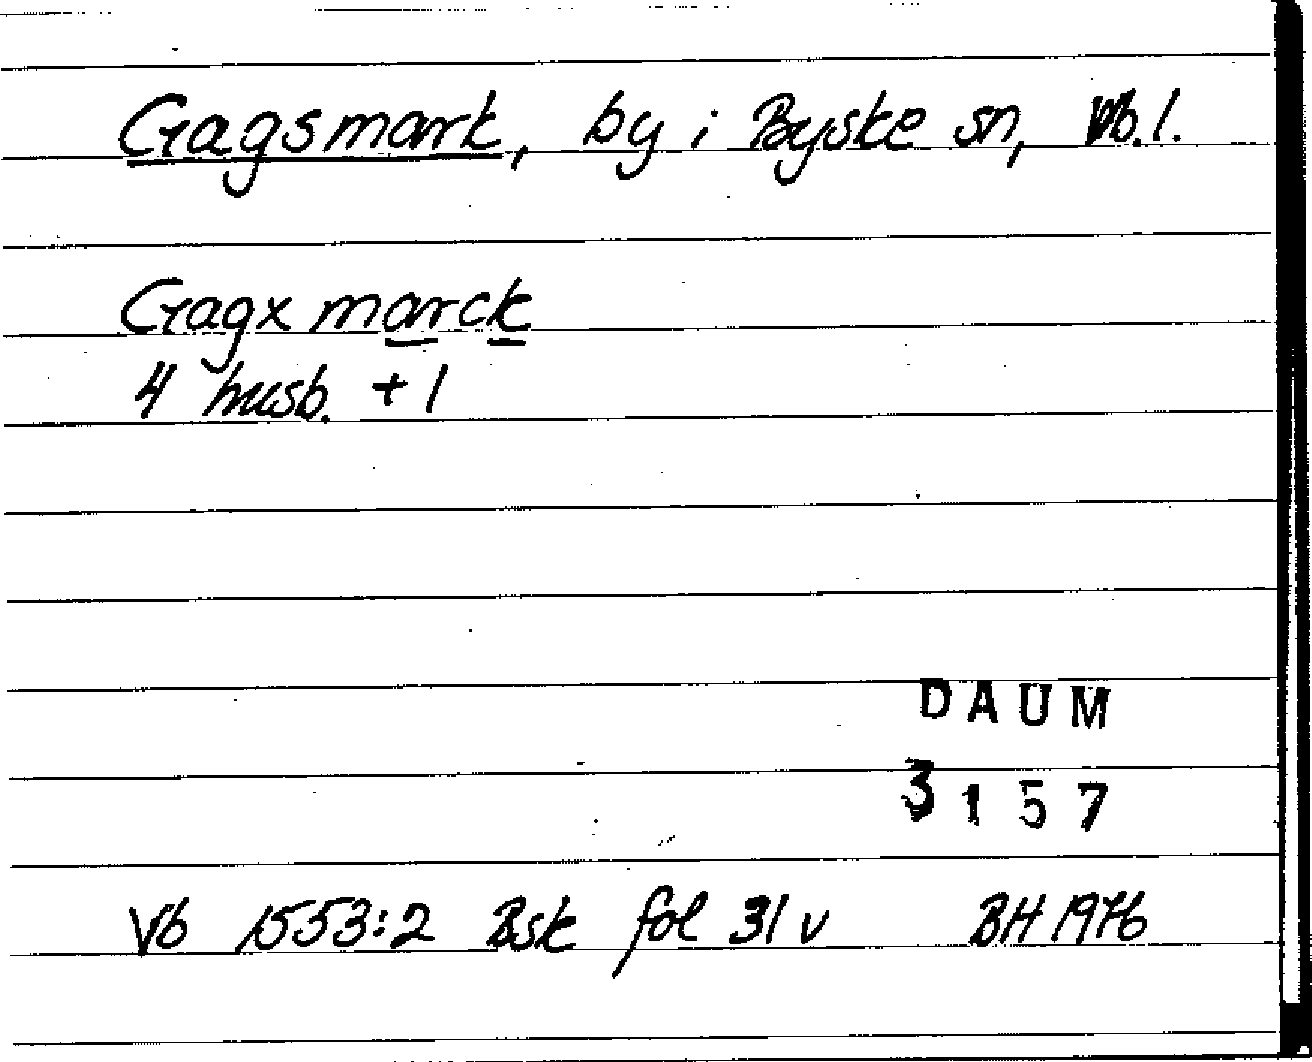 Gagsmark, by i Byske sn, Vb.l.
Gagx marck
4 husb. + 1
DAUM
3157
Vb 1553:2 Bsk fol 31 v BH 1976